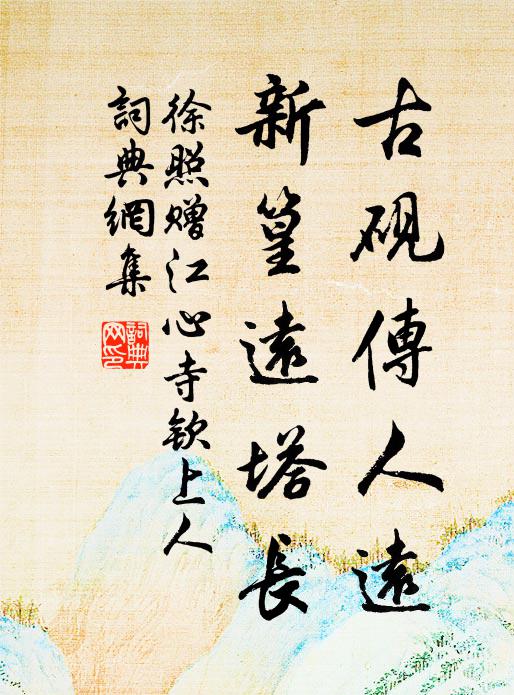 古硯傳人遠
新篁遠塔長
徐照贈江心寺欽上人
詞典網集
詞典网印